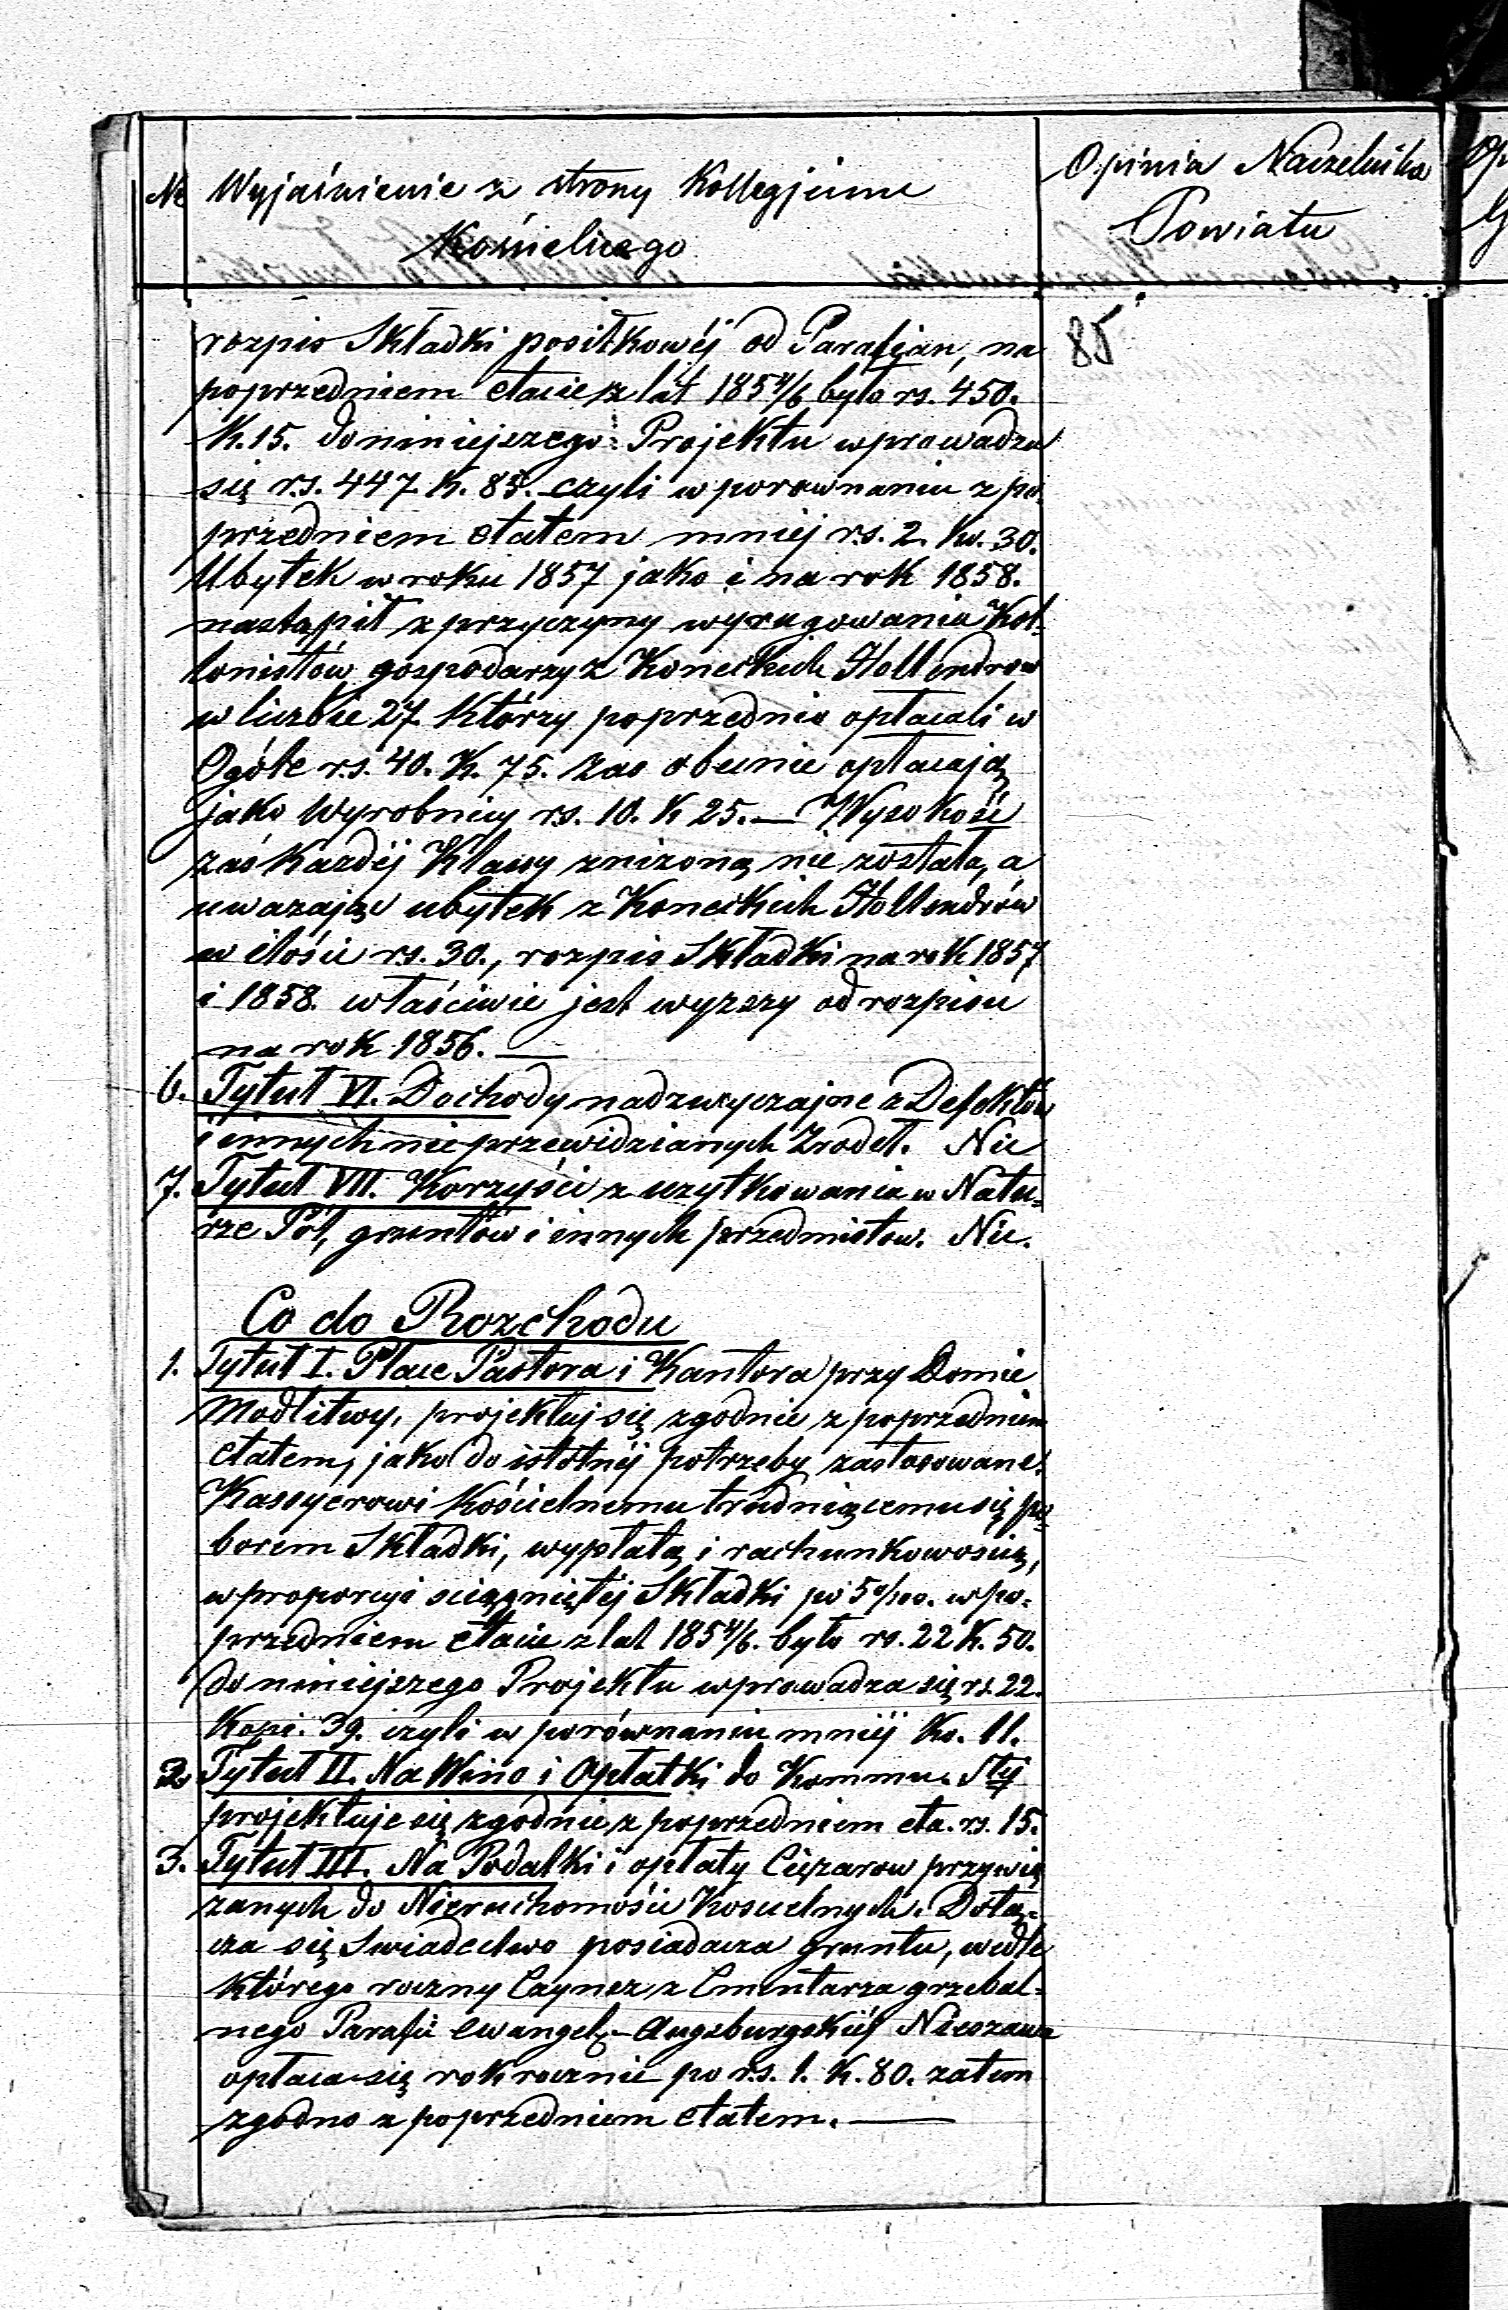 № Wyjaśnienie z strony Kollegjum
Kościelnego
Opinia Naczelnika
Powiatu
85
rozpis Składki posiłkowéj od Parafian, na
poprzedniem etacie z lat 1854/6 było rs. 450.
k. 15. do niniejszego Projektu wprowadza
się rs. 447 k. 85. czyli w porownaniu z po-
przedniem etatem mniéj rs. 2. kw. 30.
Ubytek w roku 1857 jako i na rok 1858.
nastąpił z przyczyny wyrugowania Kol-
lonistów gospodarzy z Koneckich Hollendrow
w liczbie 27 którzy poprzednio opłacali w
Ogóle rs. 40. K. 75. zas obecnie opłacają
jako Wyrobnicy rs. 10. K 25. — Wysokość
zaś Każdéj Klassy zniżoną nie została, a
uważając ubytek z Koneckich Hollendrów
w ilości rs. 30., rozpis Składki na rok 1857
i 1858 właściwie jest wyzszy od rozpisu
na rok 1856. —
6. Tytuł VI. Dochody nadzwyczajne z Defektów
i innych nieprzewidzianych Zrodeł. Nic
7. Tytuł VII. Korzyści z uzytkowania w Natu-
rze Pól, gruntów i innych przedmiotow. Nic.
Co do Rozchodu
1. Tytuł I. Płace Pastora i Kantora przy Domie
Modlitwy, projektuj się zgodnie z poprzedniem
etatem, jako do istotnéj potrzeby zastosowane.
Kassyerowi Kościelnemu trudniącemu się po-
borem Składki, wypłatą i rachunkowością,
w proporcyi sciągniętéj Składki po 5 0/00. w po-
przedniem etacie z lat 1854/6. było rs. 22 K. 50.
do niniejszego Projektu wprowadza się rs. 22.
Kopi. 39. czyli w porównaniu mniéj Ko. 11.
2. Tytuł II. Na Wino i Opłatki do Kommu. Stéj
projektuje się zgodnie z poprzedniem eta. rs. 15.
3. Tytuł III. Na Podatki i opłaty Ciężarow przywią
zanych do Nieruchomości Koscielnych. Dołą-
cza się Swiadectwo posiadacza gruntu, wedle
którego roczny Czynsz z Cmentarza grzebal-
nego Parafii ewangel-Augsburgskiéj Nieszawa
opłaca się rok rocznie po rs. 1. K. 80. zatem
zgodno z poprzedniem etatem. —